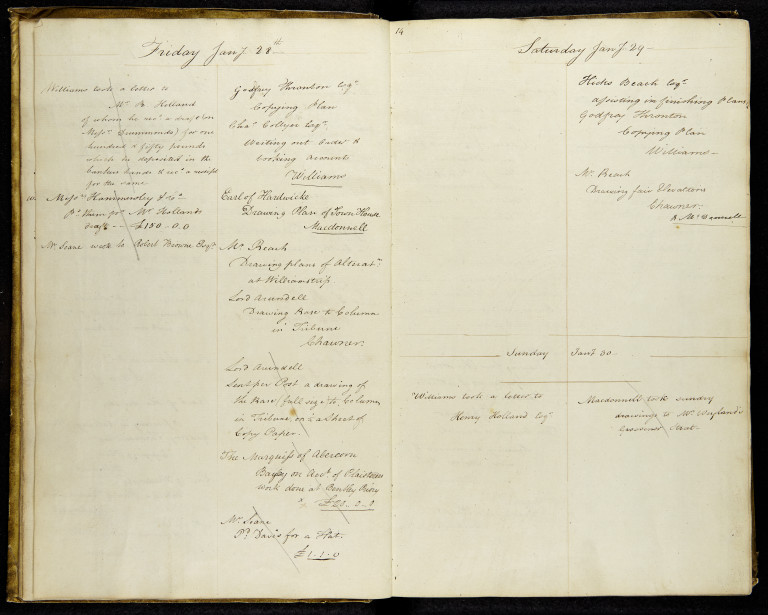 Friday Jany. 28th
Williams wrote a letter to
Mr. H. Holland
of whom he recd. a draft on
Messrs. Drummonds for one
hundred & fifty pounds
which he deposited in the
bankers hands & recd. a receipt
for the same
Messrs. Hammersley & Co.
Pd. them pr. Mr. Hollands
draft -- £150-0.0
Mr. Soane wrote to Robert Browne Esqr.
Godfrey Thornton Esqr.
Copying Plan
Chas. Collyer Esqr.
Writing out Order &
booking account
Williams
Earl of Hardwicke
Drawing Plan of Town House
Macdonnell
Mr. Beach
Drawing plans of Alteratn.
at Williamstrip
Lord Arundell
Drawing Base to Column
in Tribune
Chawner.
Lord Arundell
Sent per Post a drawing of
the Base full size to Column
in Tribune, on ½ a Sheet of
Copy Paper.
The Marquiss of Abercorn
on Acct. of Plaisterers
work done at Bentley Priory
Mr. Soane
Pd. Davis for a Hat.
£1.1.0
14
Saturday Jany. 29
Hicks Beach Esqr.
assisting in finishing Plans
Godfray Thronton
Copying Plan
Williams
Mr. Beach
Drawing fair Elevations
Chawner.
& McDonnell
Sunday Jany. 30
Williams wrote a letter to
Henry Holland Esqr.
Macdonnell took sundry
drawings to Mr.
Grosvenor Street.